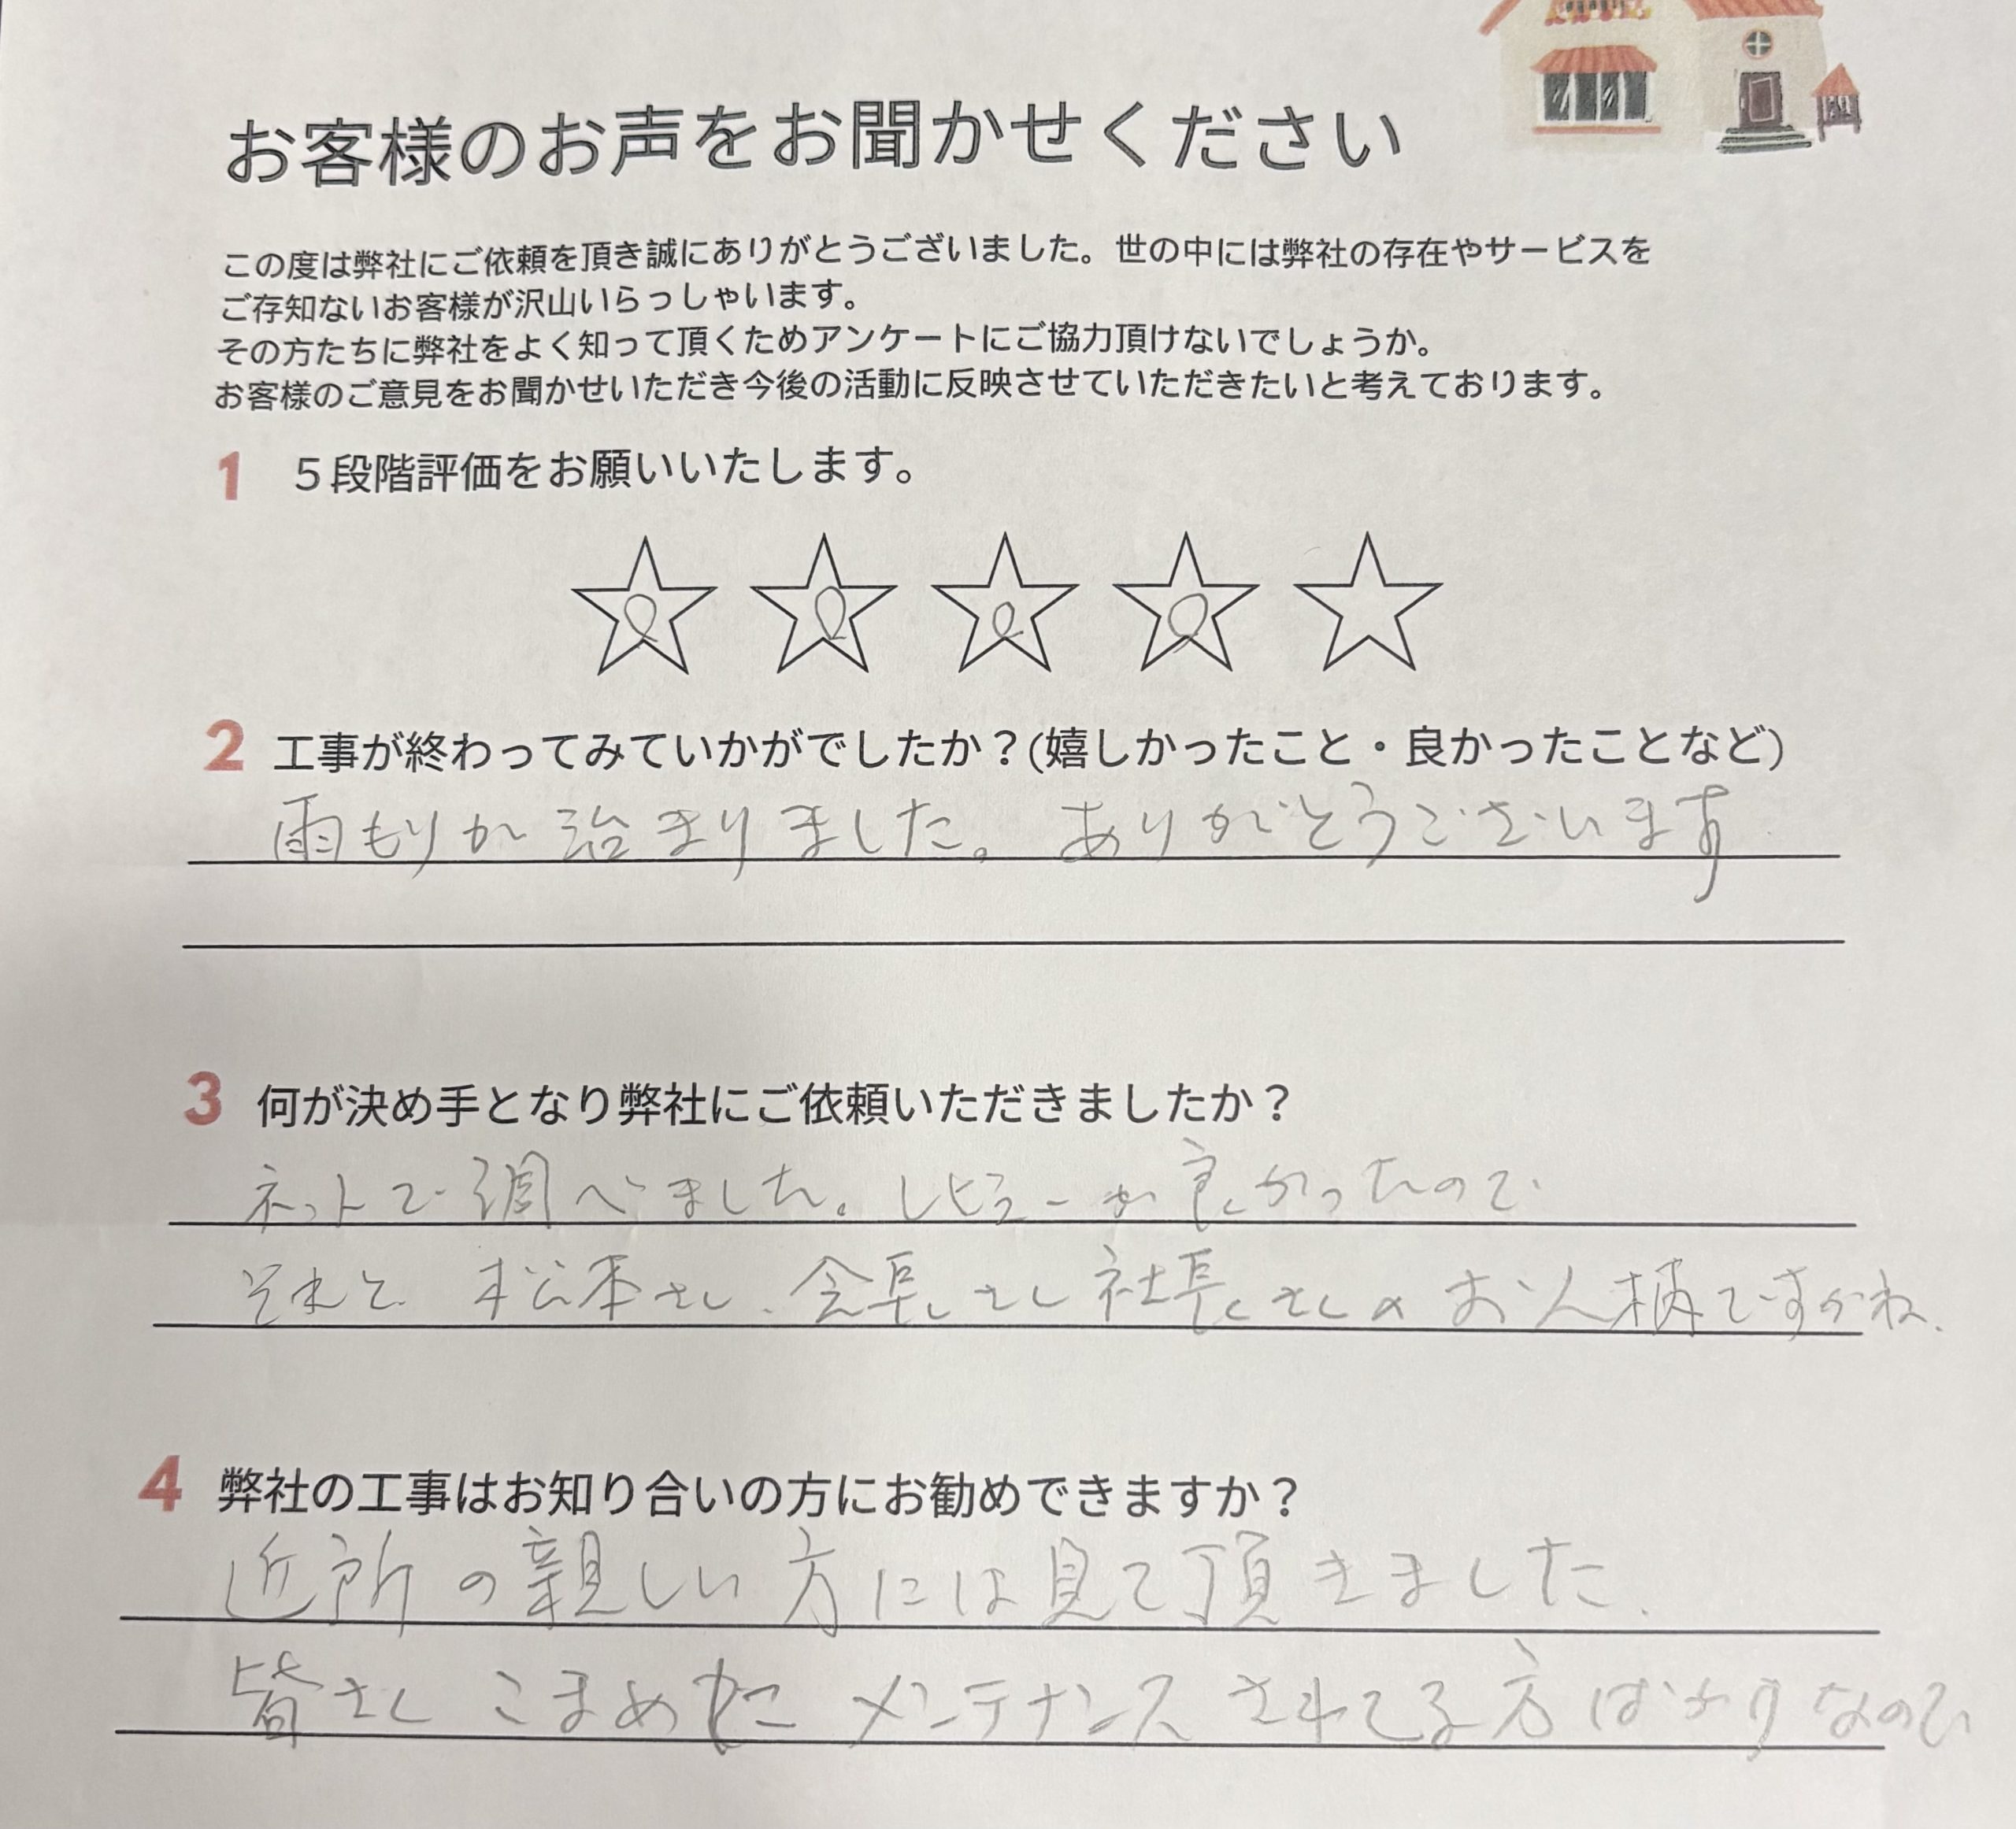 お客様のお声をお聞かせください
この度は弊社にご依頼を頂き誠にありがとうございました。世の中には弊社の存在やサービスを
ご存知ないお客様が沢山いらっしゃいます。
その方たちに弊社をよく知って頂くためアンケートにご協力頂けないでしょうか。
お客様のご意見をお聞かせいただき今後の活動に反映させていただきたいと考えております。
1 5段階評価をお願いいたします。
2 工事が終わってみていかがでしたか？(嬉しかったこと・良かったことなど)
雨もりが治まりました。ありがとうございます
3 何が決め手となり弊社にご依頼いただきましたか？
ネットで調べました。レビューが良かったので
それと 松本さん、会長さん 社長さんの お人柄ですかね、
4 弊社の工事はお知り合いの方にお勧めできますか？
近所の親しい方には見て頂きました、
皆さん こまめに メンテナンスされてる方ばかりなので